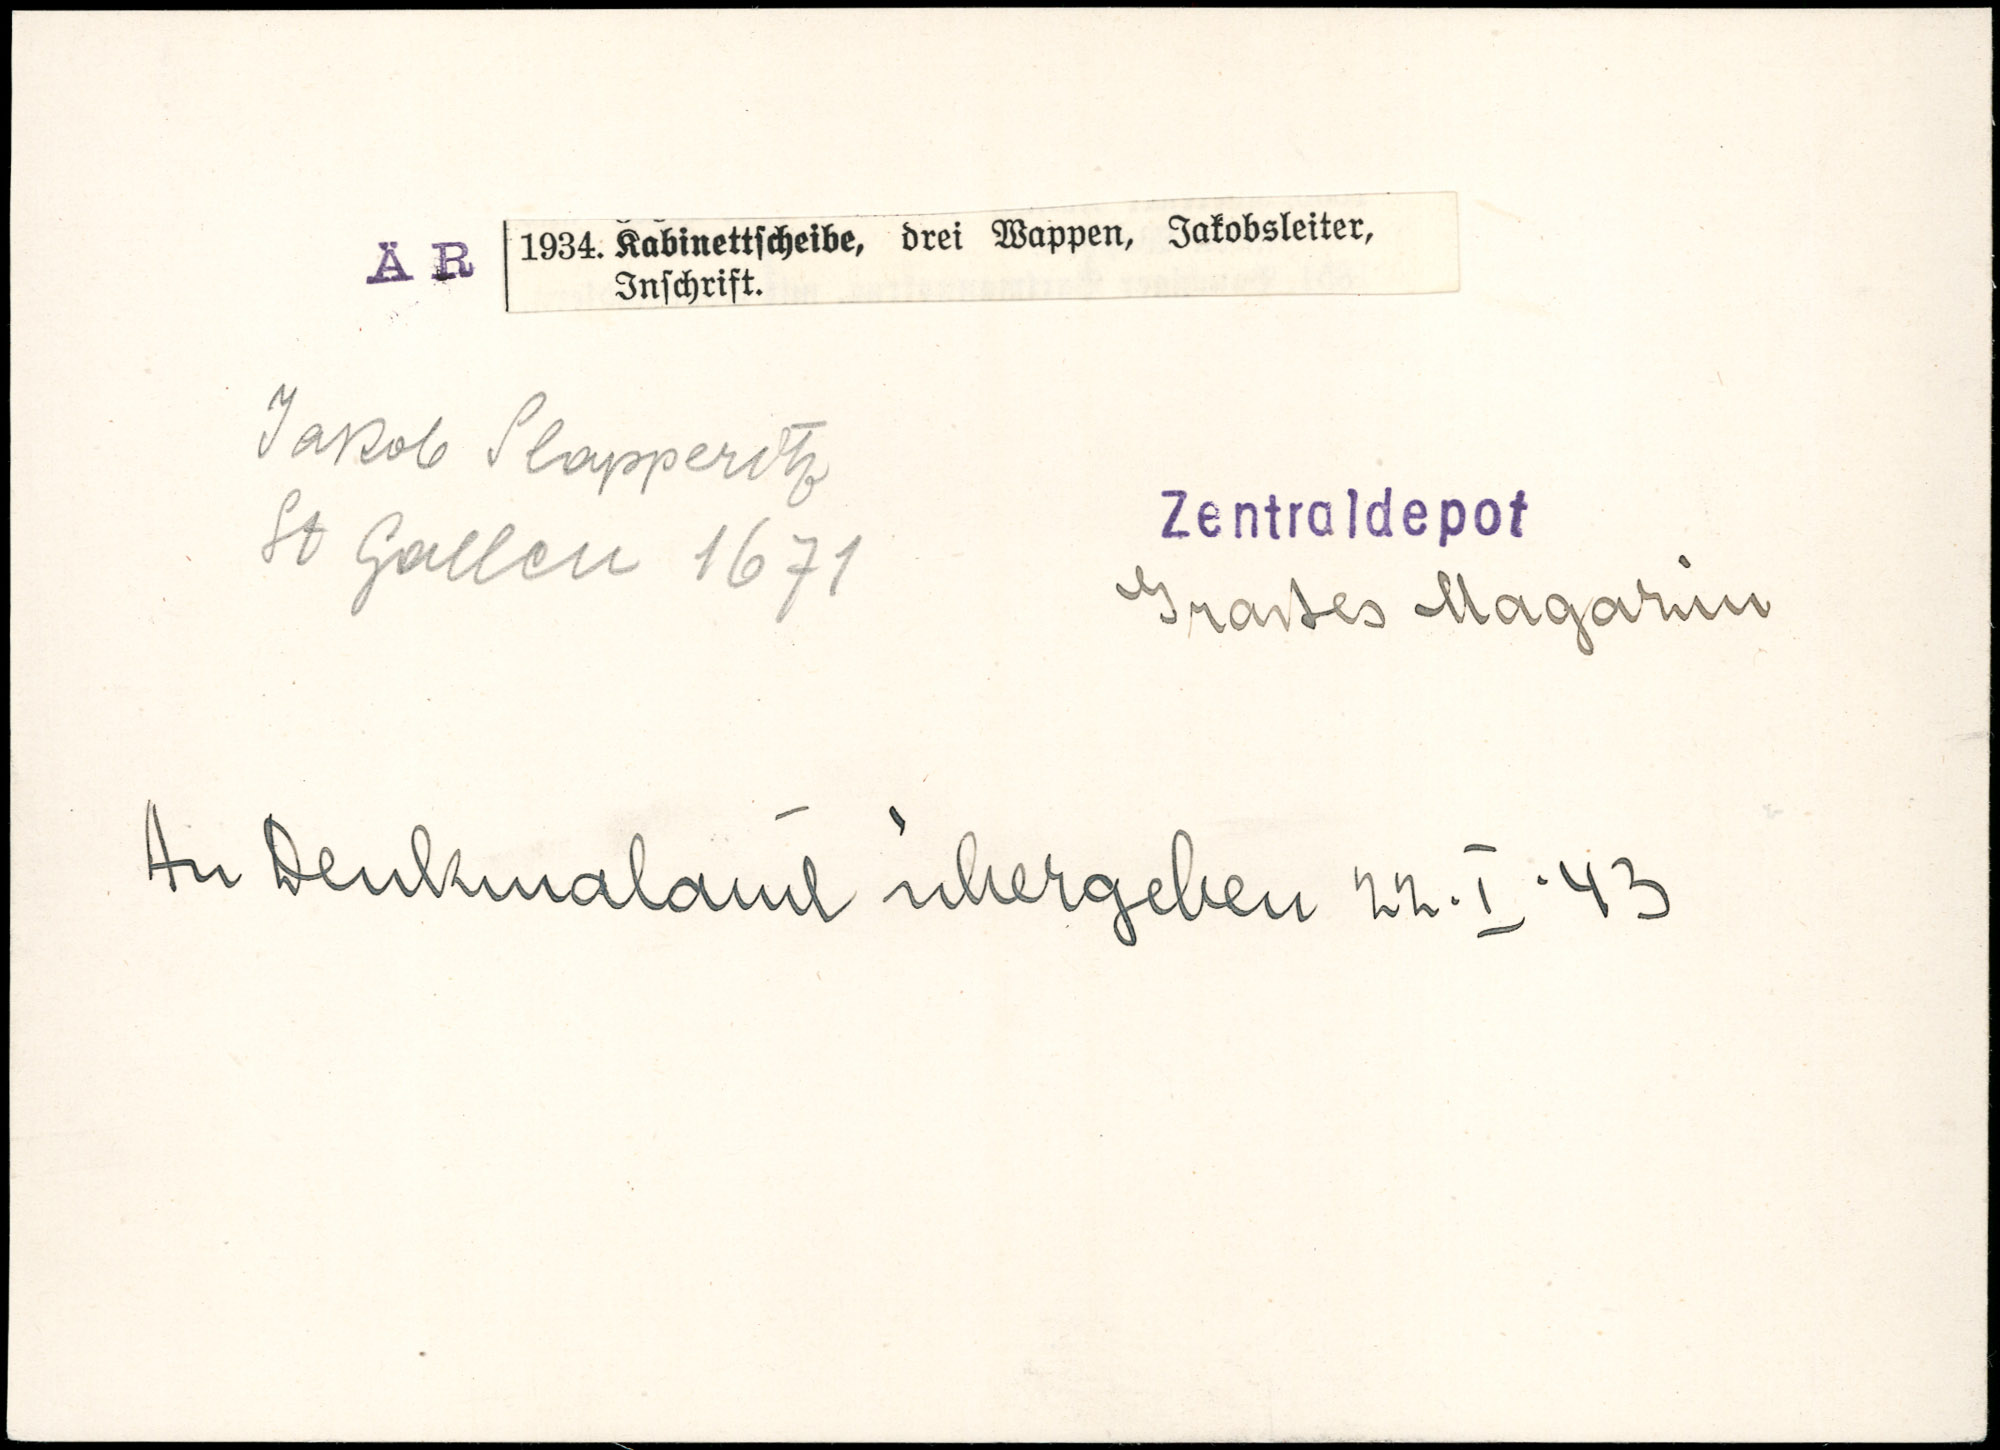 ÄR 1934. Kabinettscheibe, drei Wappen, Jakobsleiter,
Inschrift.
Jakob Slapperitz
St Gallen 1671
Zentraldepot
Magazin
An Denkmalamt übergeben 22.I.43